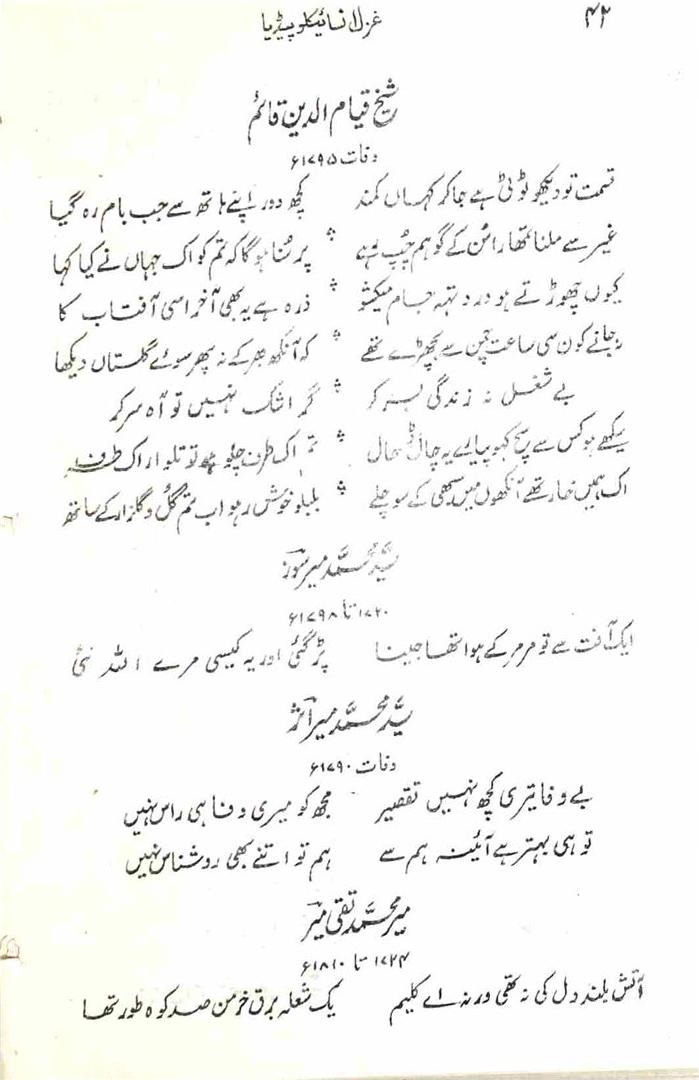 ۴۲ غزل انسائیکلوپیڈیا
شیخ قیام الدین قائم
وفات ۱۷۹۵ء
قسمت تو دیکھو ٹوٹی ہے جا کر کہاں کمند کچھ دور اپنے ہاتھ سے جب بام رہ گیا
غیر سے ملنا تمھارا سُن کے گو ہم چُپ رہے پر سُنا ہوگا کہ تم کو اک جہاں نے کیا کہا
کیوں چھوڑتے ہو درد تہہ جام میکشو ذرہ ہے یہ بھی آخر اسی آفتاب کا
نجانے کون سی ساعت چمن سے بچھڑے تھے کہ آنکھ بھر کے نہ پھر سوئے گلستاں دیکھا
بے شغل نہ زندگی بسر کر گر اشک نہیں تو آہ سر کر
سیکھے ہو کس سے سچ کہو پیارے یہ چال ڈھال تم اک طرف چلو ہو تو تلوار اک طرف
اک ہمیں خار تھے آنکھوں میں سبھی کے سو چلے بلبلو خوش رہو اب تم گل و گلزار کے ساتھ
سیّد محمّد میر سوز
۱۷۲۰ تا ۱۷۹۸ء
ایک آفت سے تو مر مر کے ہوا تھا جینا پڑ گئی اور یہ کیسی مرے اللہ نئی
سیّد محمّد میر اثر
وفات ۱۷۹۰ء
بے وفا تیری کچھ نہیں تقصیر مجھ کو میری وفا ہی راس نہیں
تو ہی بہتر ہے آئینہ ہم سے ہم تو اتنے بھی روشناس نہیں
میر محمّد تقی میر
۱۷۲۴ تا ۱۸۱۰ء
آتش بلند دل کی نہ تھی ورنہ اے کلیم یک شعلہ برق خرمن صد کوہ طور تھا